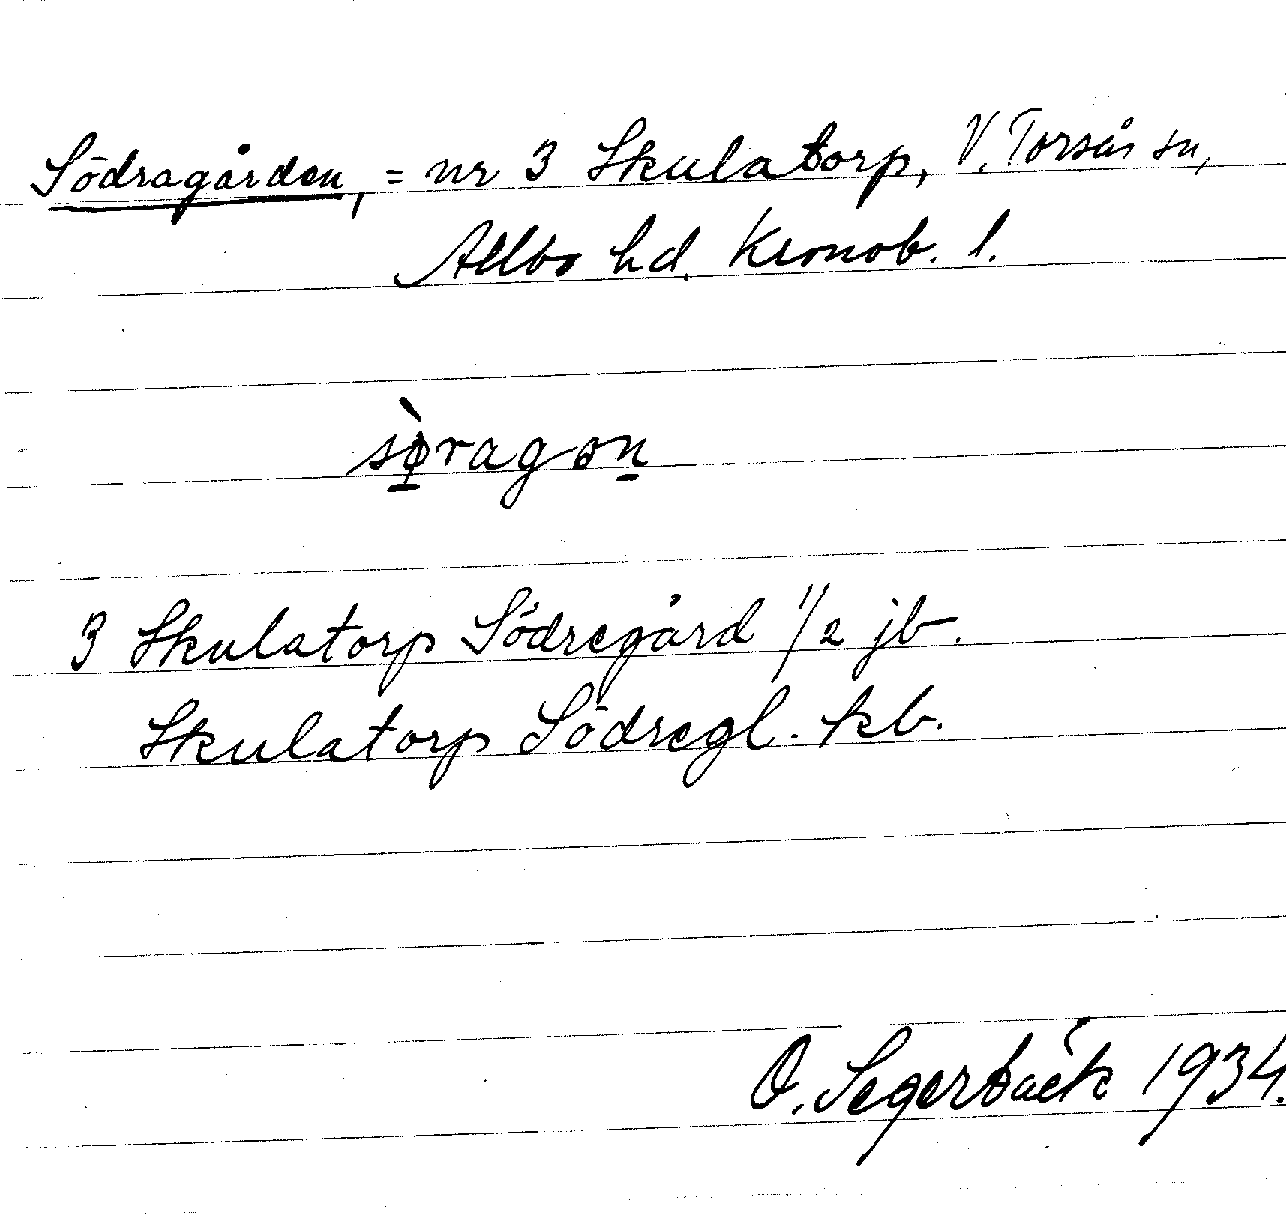 Södragården, = nr 3 Skulatorp, V. Torsås sn,
Allbo hd. Kronob. l.
sø̀ragon
3 Skulatorp Södregård 1/2 jb.
Skulatorp Södregl. kb.
O. Segerbäck 1934.